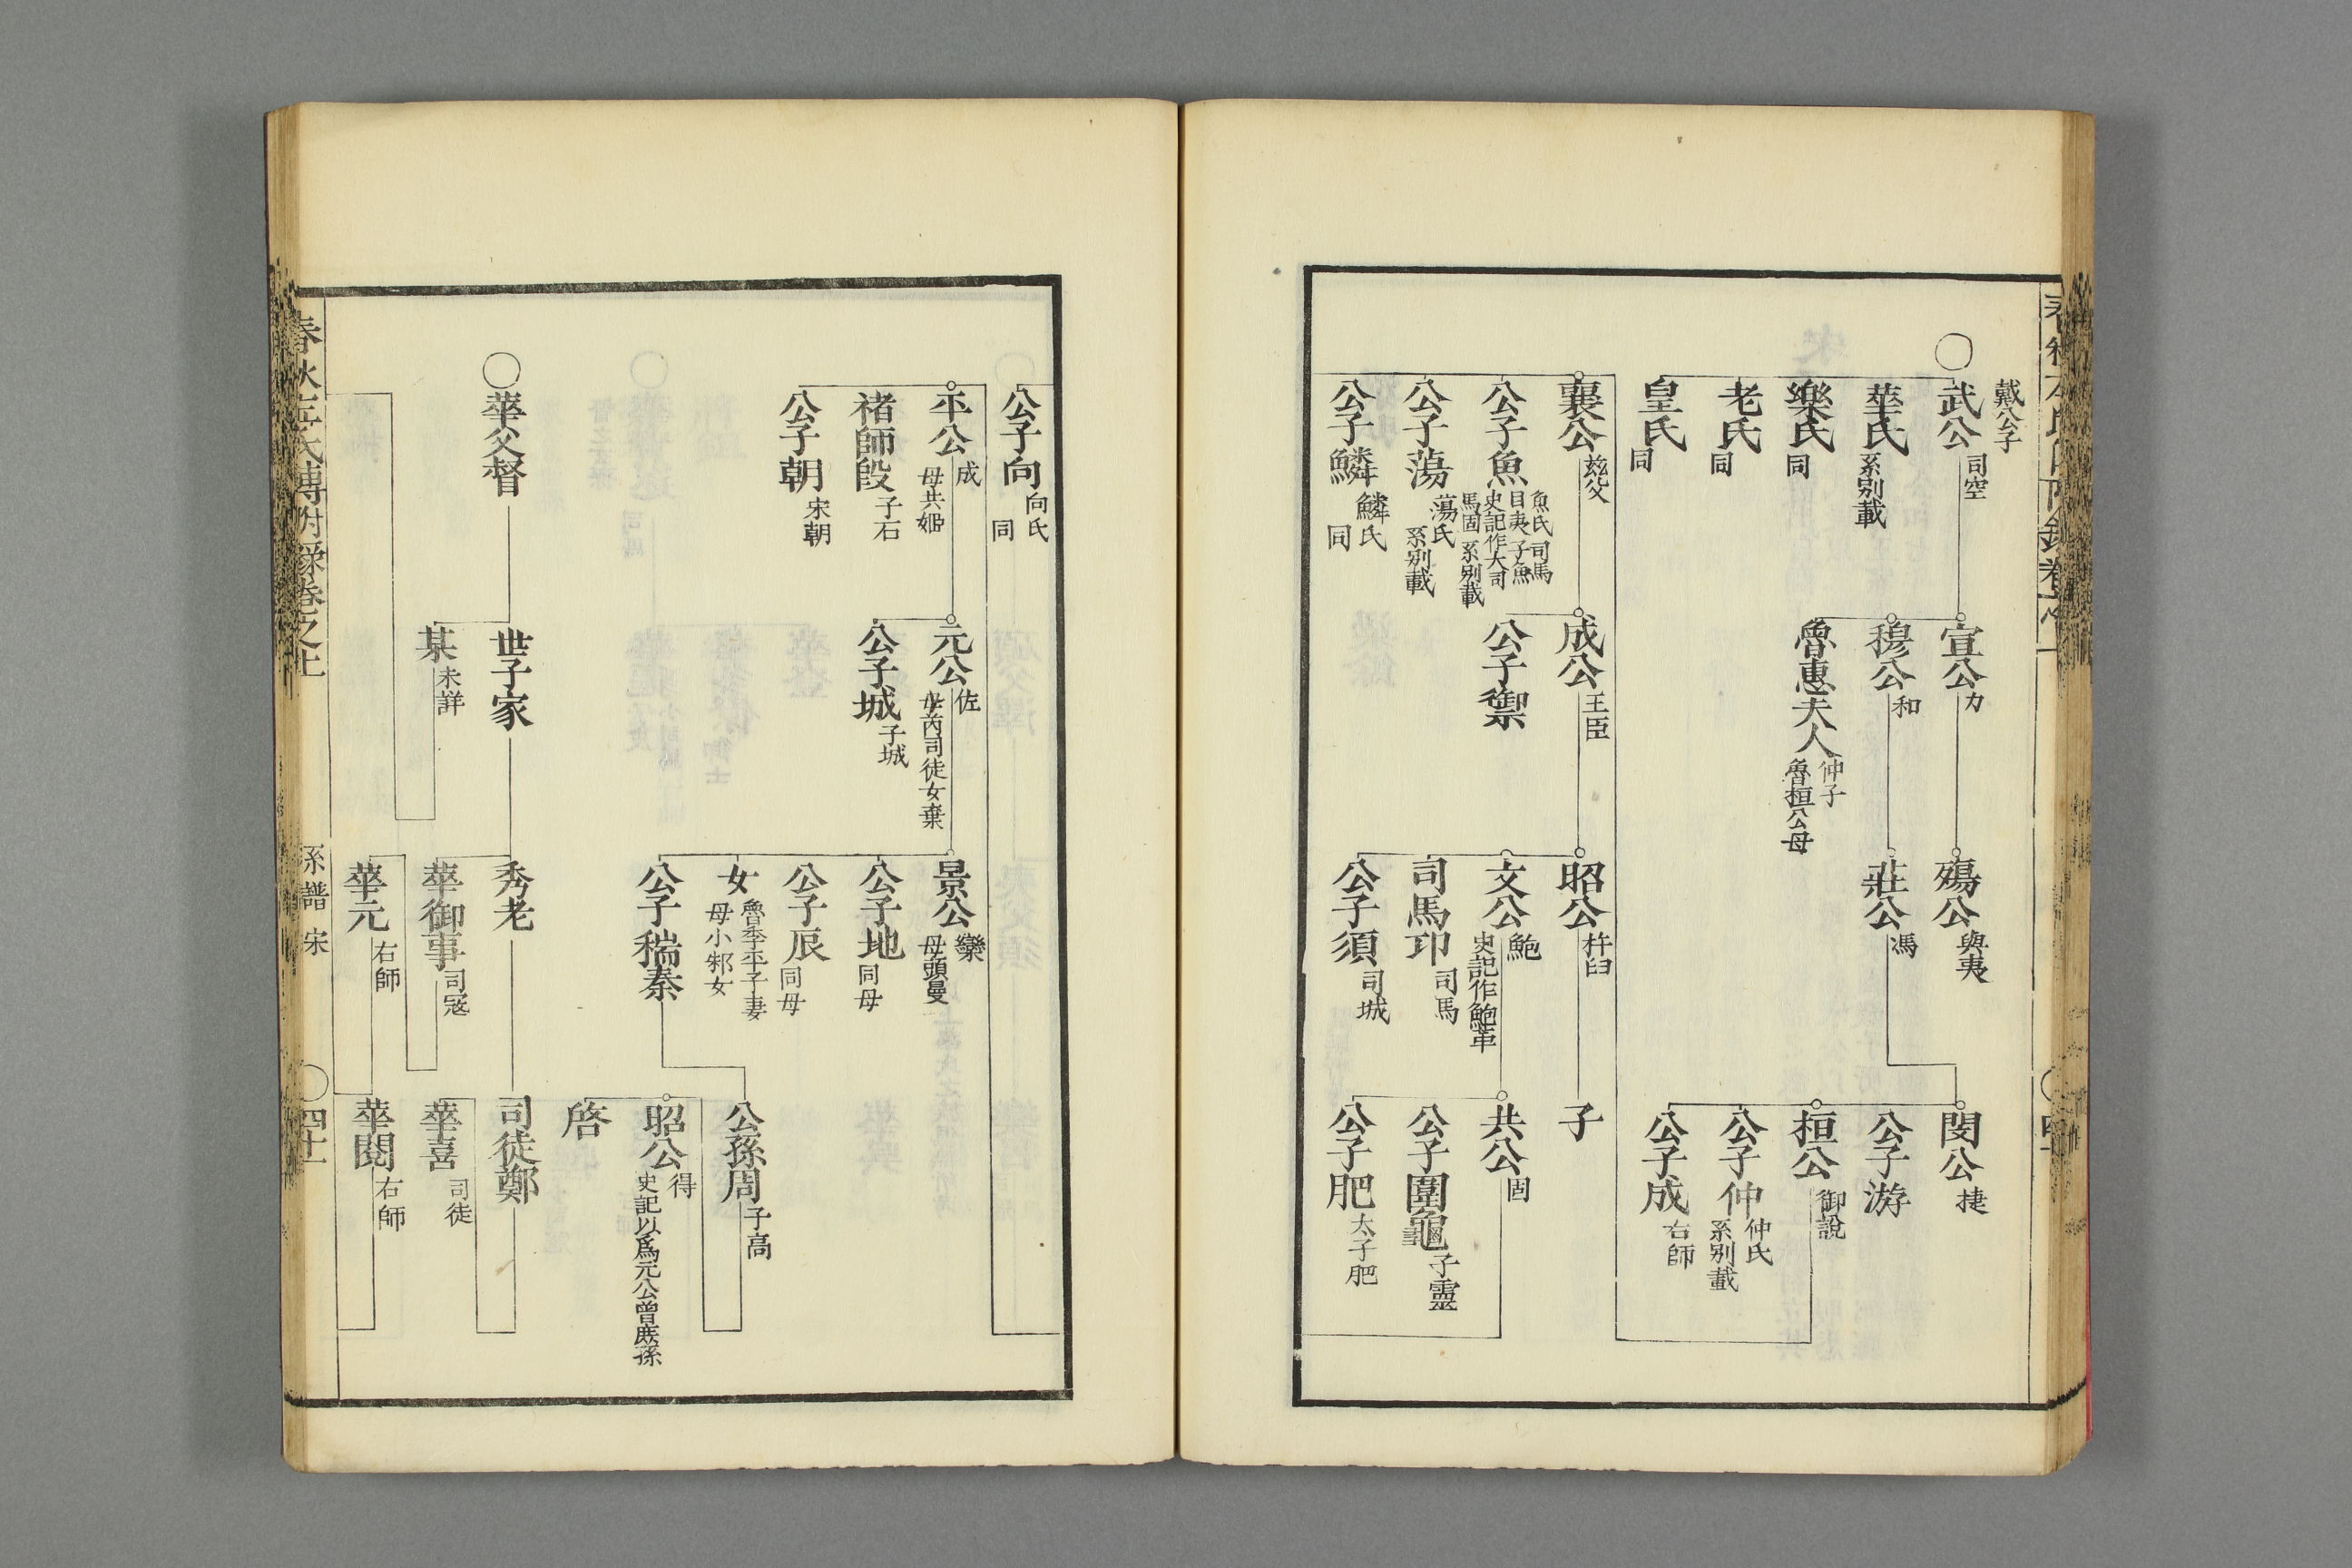 戴公子
武公 司空
華氏 系別載
樂氏 同
老氏 同
皇氏 同
宣公 力
穆公 和
魯惠夫人 仲子
魯桓公母
殤公 與夷
莊公 馮
閔公 捷
公子游
桓公 御說
公子仲 仲氏
系別載
公子成 右師
襄公 茲父
公子魚 魚氏 司馬
目夷 子魚
史記作大司
馬固 系別載
公子蕩 蕩氏
系別載
公子鱗 鱗氏
同
成公 王臣
公子禦
昭公 杵臼
文公 鮑
史記作鮑革
司馬卬 司馬
公子須 司城
子
共公 固
公子圍龜 子靈
公子肥 太子肥
公子向 向氏
同
平公 成
母共姬
褚師段 子石
公子朝 宋朝
元公 佐
母芮司徒女棄
公子城 子城
景公 欒
母頭曼
公子地 同母
公子辰 同母
女 魯季平子妻
母小邾女
公子褍秦
公孫周 子高
昭公 得
史記以爲元公曾庶孫
啓
華父督
世子家
某 未詳
秀老
華御事 司寇
華元 右師
司徒鄭
華喜 司徒
華閱 右師
春秋左氏傳附錄卷之上
系譜 宋
〇四十一